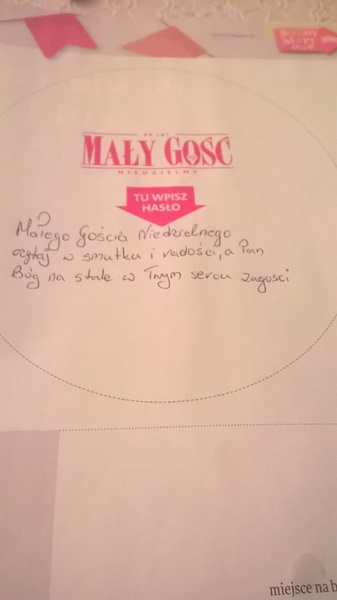 MAŁY GOŚĆ
NIEDZIELNY
TU WPISZ
HASŁO
Małego Gościa Niedzielnego
czytaj w smutku i radości, a Pan
Bóg na stałe w Twym sercu zagości
miejsce na b